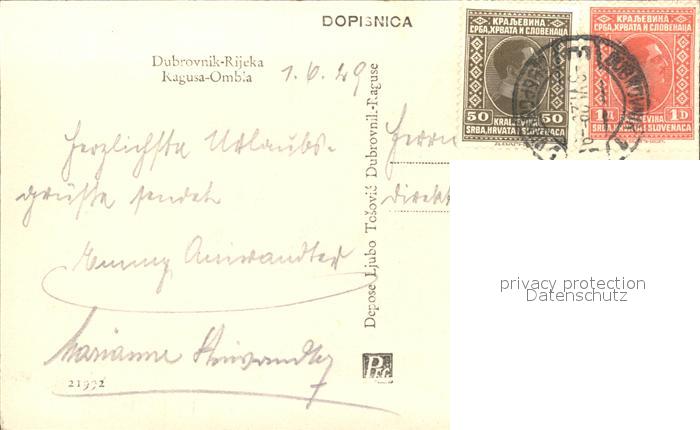 DOPISNICA
Dubrovnik-Rijeka
Ragusa-Ombla
1.6.29
Herzlichste Urlaubs-
grüße sendet
Emmy Anwandter
Marianne Anwandter
21992
Depose Ljubo Tošović Dubrovnik-Raguse
Herrn
Direkt
КРАЉЕВИНА
СРБА, ХРВАТА И СЛОВЕНАЦА
50 50
KRALJEVINA
SRBA, HRVATA I SLOVENACA
КРАЉЕВИНА
СРБА, ХРВАТА И СЛОВЕНАЦА
1 1D
KRALJEVINA
SRBA, HRVATA I SLOVENACA
privacy protection
Datenschutz